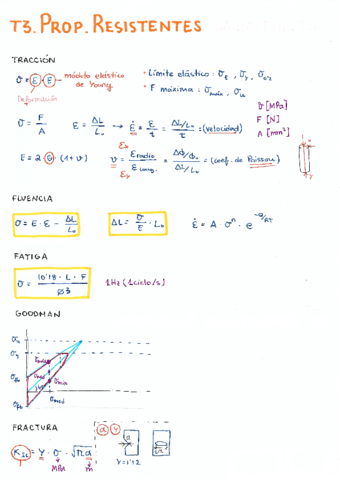 T3. PROP. RESISTENTES
TRACCIÓN
σ = E · ε → módulo elástico de Young
Deformación
• Límite elástico: σE, σy, σ0'2
• F máxima: σmáx, σu
σ = F / A
ε = ΔL / L₀ → ε̇ = ε / t = (ΔL/L₀) / t = (velocidad)
σ [MPa]
F [N]
A [mm²]
E = 2 G (1 + ν)
ν = ε radio / ε long. = (Δφ/φ₀) / (ΔL/L₀) = (coef. de Poisson)
FLUENCIA
σ = E · ε = ΔL / L₀
ΔL = σ / E · L₀
ε̇ = A · σⁿ · e^(-Q/RT)
FATIGA
σ = 10'18 · L · F / ø3
1Hz (1 ciclo/s)
GOODMAN
FRACTURA
K Ic = Y · σ · √π a
MPa
m
a
Y = 1'12